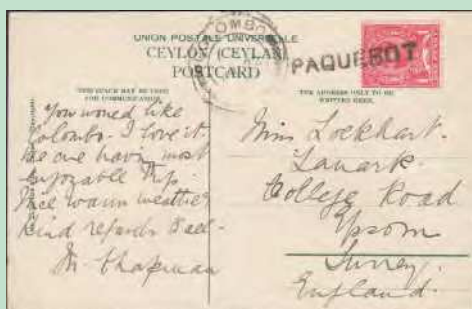 UNION POSTALE UNIVERSELLE
CEYLON (CEYLAN)
POSTCARD
PAQUEBOT
THIS SPACE MAY BE USED
FOR COMMUNICATION.
THE ADDRESS ONLY TO BE
WRITTEN HERE.
You would like
Colombo. I love it.
We are having most
enjoyable trip.
Nice warm weather
Kind regards to all -
M. Chapman
Miss Lockhart.
Lanark.
College Road
Epsom
Surrey.
England.